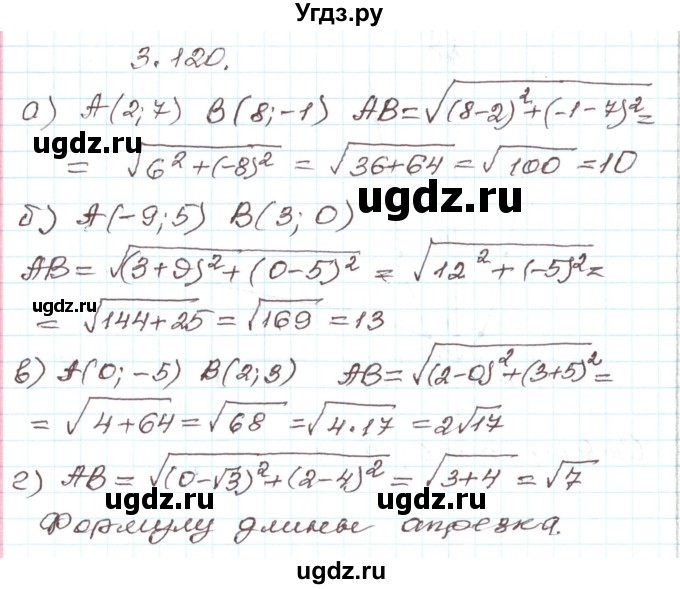 Угдз.ру
3.120.
а) A(2;7) B(8;-1) AB=√(8-2)²+(-1-7)²=
= √6²+(-8)² = √36+64 = √100 =10
б) A(-9;5) B(3;0)
AB = √(3+9)²+(0-5)² = √12²+(-5)² =
= √144+25 = √169 = 13
в) A(0;-5) B(2;3) AB=√(2-0)²+(3+5)² =
= √4+64 = √68 = √4·17 = 2√17
г) AB = √(0-√3)²+(2-4)² = √3+4 = √7
Формулу длины отрезка.
ugdz.ru
ugdz.ru
ugdz.ru
ugdz.ru
ugdz.ru
ugdz.ru
ugdz.ru
ugdz.ru